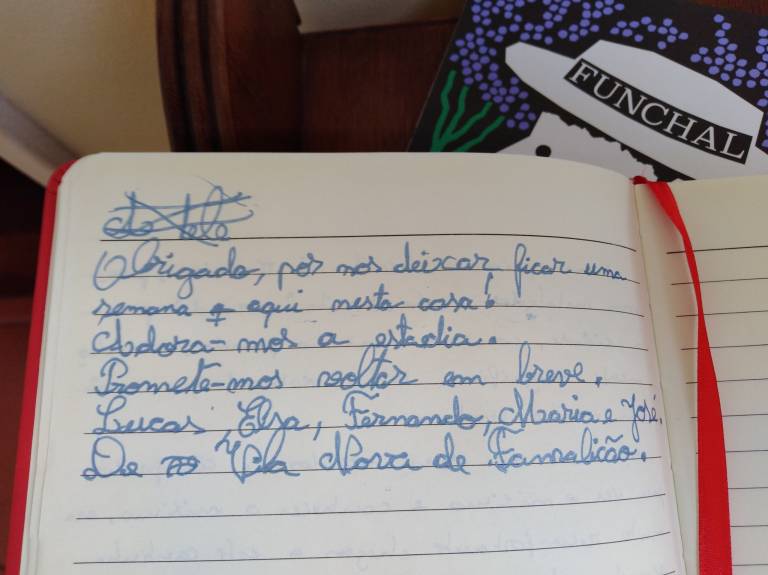 FUNCHAL
Obrigado, por nos deixar, ficar uma
semana aqui nesta casa!
Adora-mos a estadia.
Promete-mos voltar em breve.
Lucas, Elsa, Fernando, Maria e José.
De Vila Nova de Famalicão.